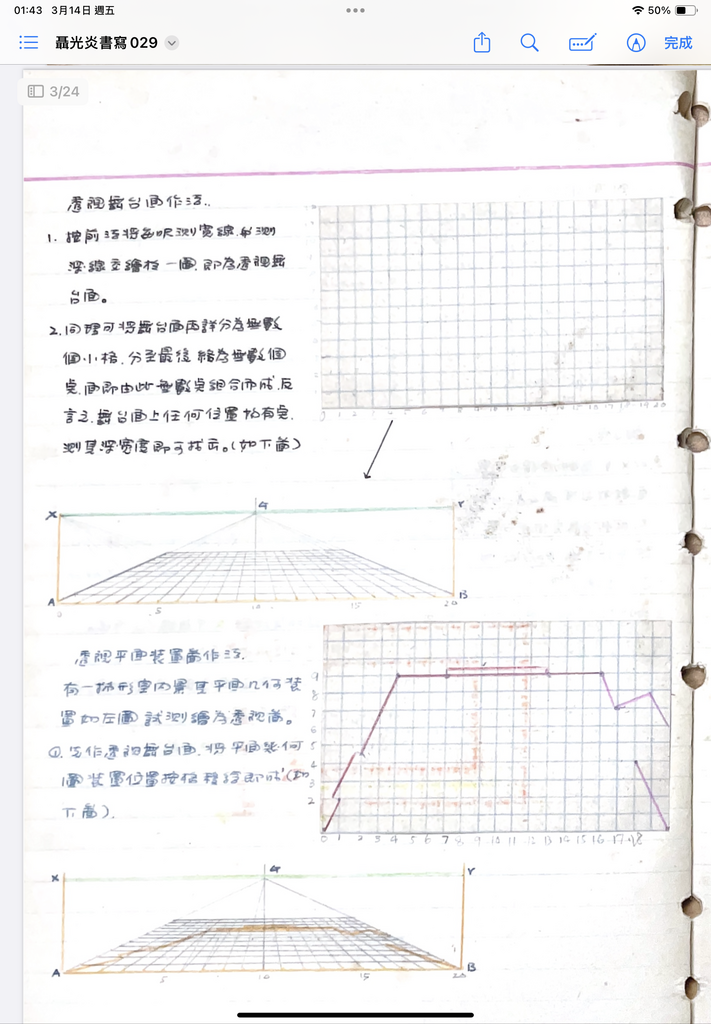 01:43 3月14日 週五
50%
聶光炎書寫029
完成
3/24
透視舞台面作法..
1. 按前法將各呎測寬線與測
深線交繪於一圖,即為透視舞
台面。
2. 同理可將舞台面再詳分為無數
個小格,分至最後縮為無數個
點,面即由此無數點組合而成,反
言之,舞台面上任何位置於有點,
測其深寬度即可指示。(如下圖)
0 1 2 3 4 5 6 7 8 9 10 11 12 13 14 15 16 17 18 19 20
X G Y
A B
0 5 10 15 20
透視平面裝置圖作法.
有一梯形室內景其平面几何裝
置如左圖試測繪為透視圖。
①.先作透視舞台面,將平面幾何
圖裝置位置按格移繪即成(如
下圖).
9
8
7
6
5
4
3
2
0 1 2 3 4 5 6 7 8 9 10 11 12 13 14 15 16 17 18
X G Y
A B
5 10 15 20